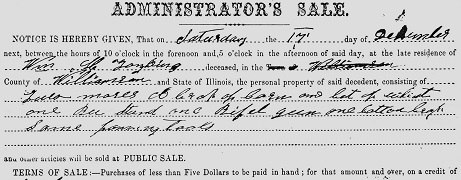 ADMINISTRATOR'S SALE.
NOTICE IS HEREBY GIVEN, That on Saturday the 17 day of December
next, between the hours of 10 o'clock in the forenoon and 5 o'clock in the afternoon of said day, at the late residence of
Wm deceased, in the
County of Williamson and State of Illinois, the personal property of said decedent, consisting of
mares A Crop of Corn and lot of
one Stand one gun one
Some farming tools
and other articles will be sold at PUBLIC SALE.
TERMS OF SALE:—Purchases of less than Five Dollars to be paid in hand; for that amount and over, on a credit of